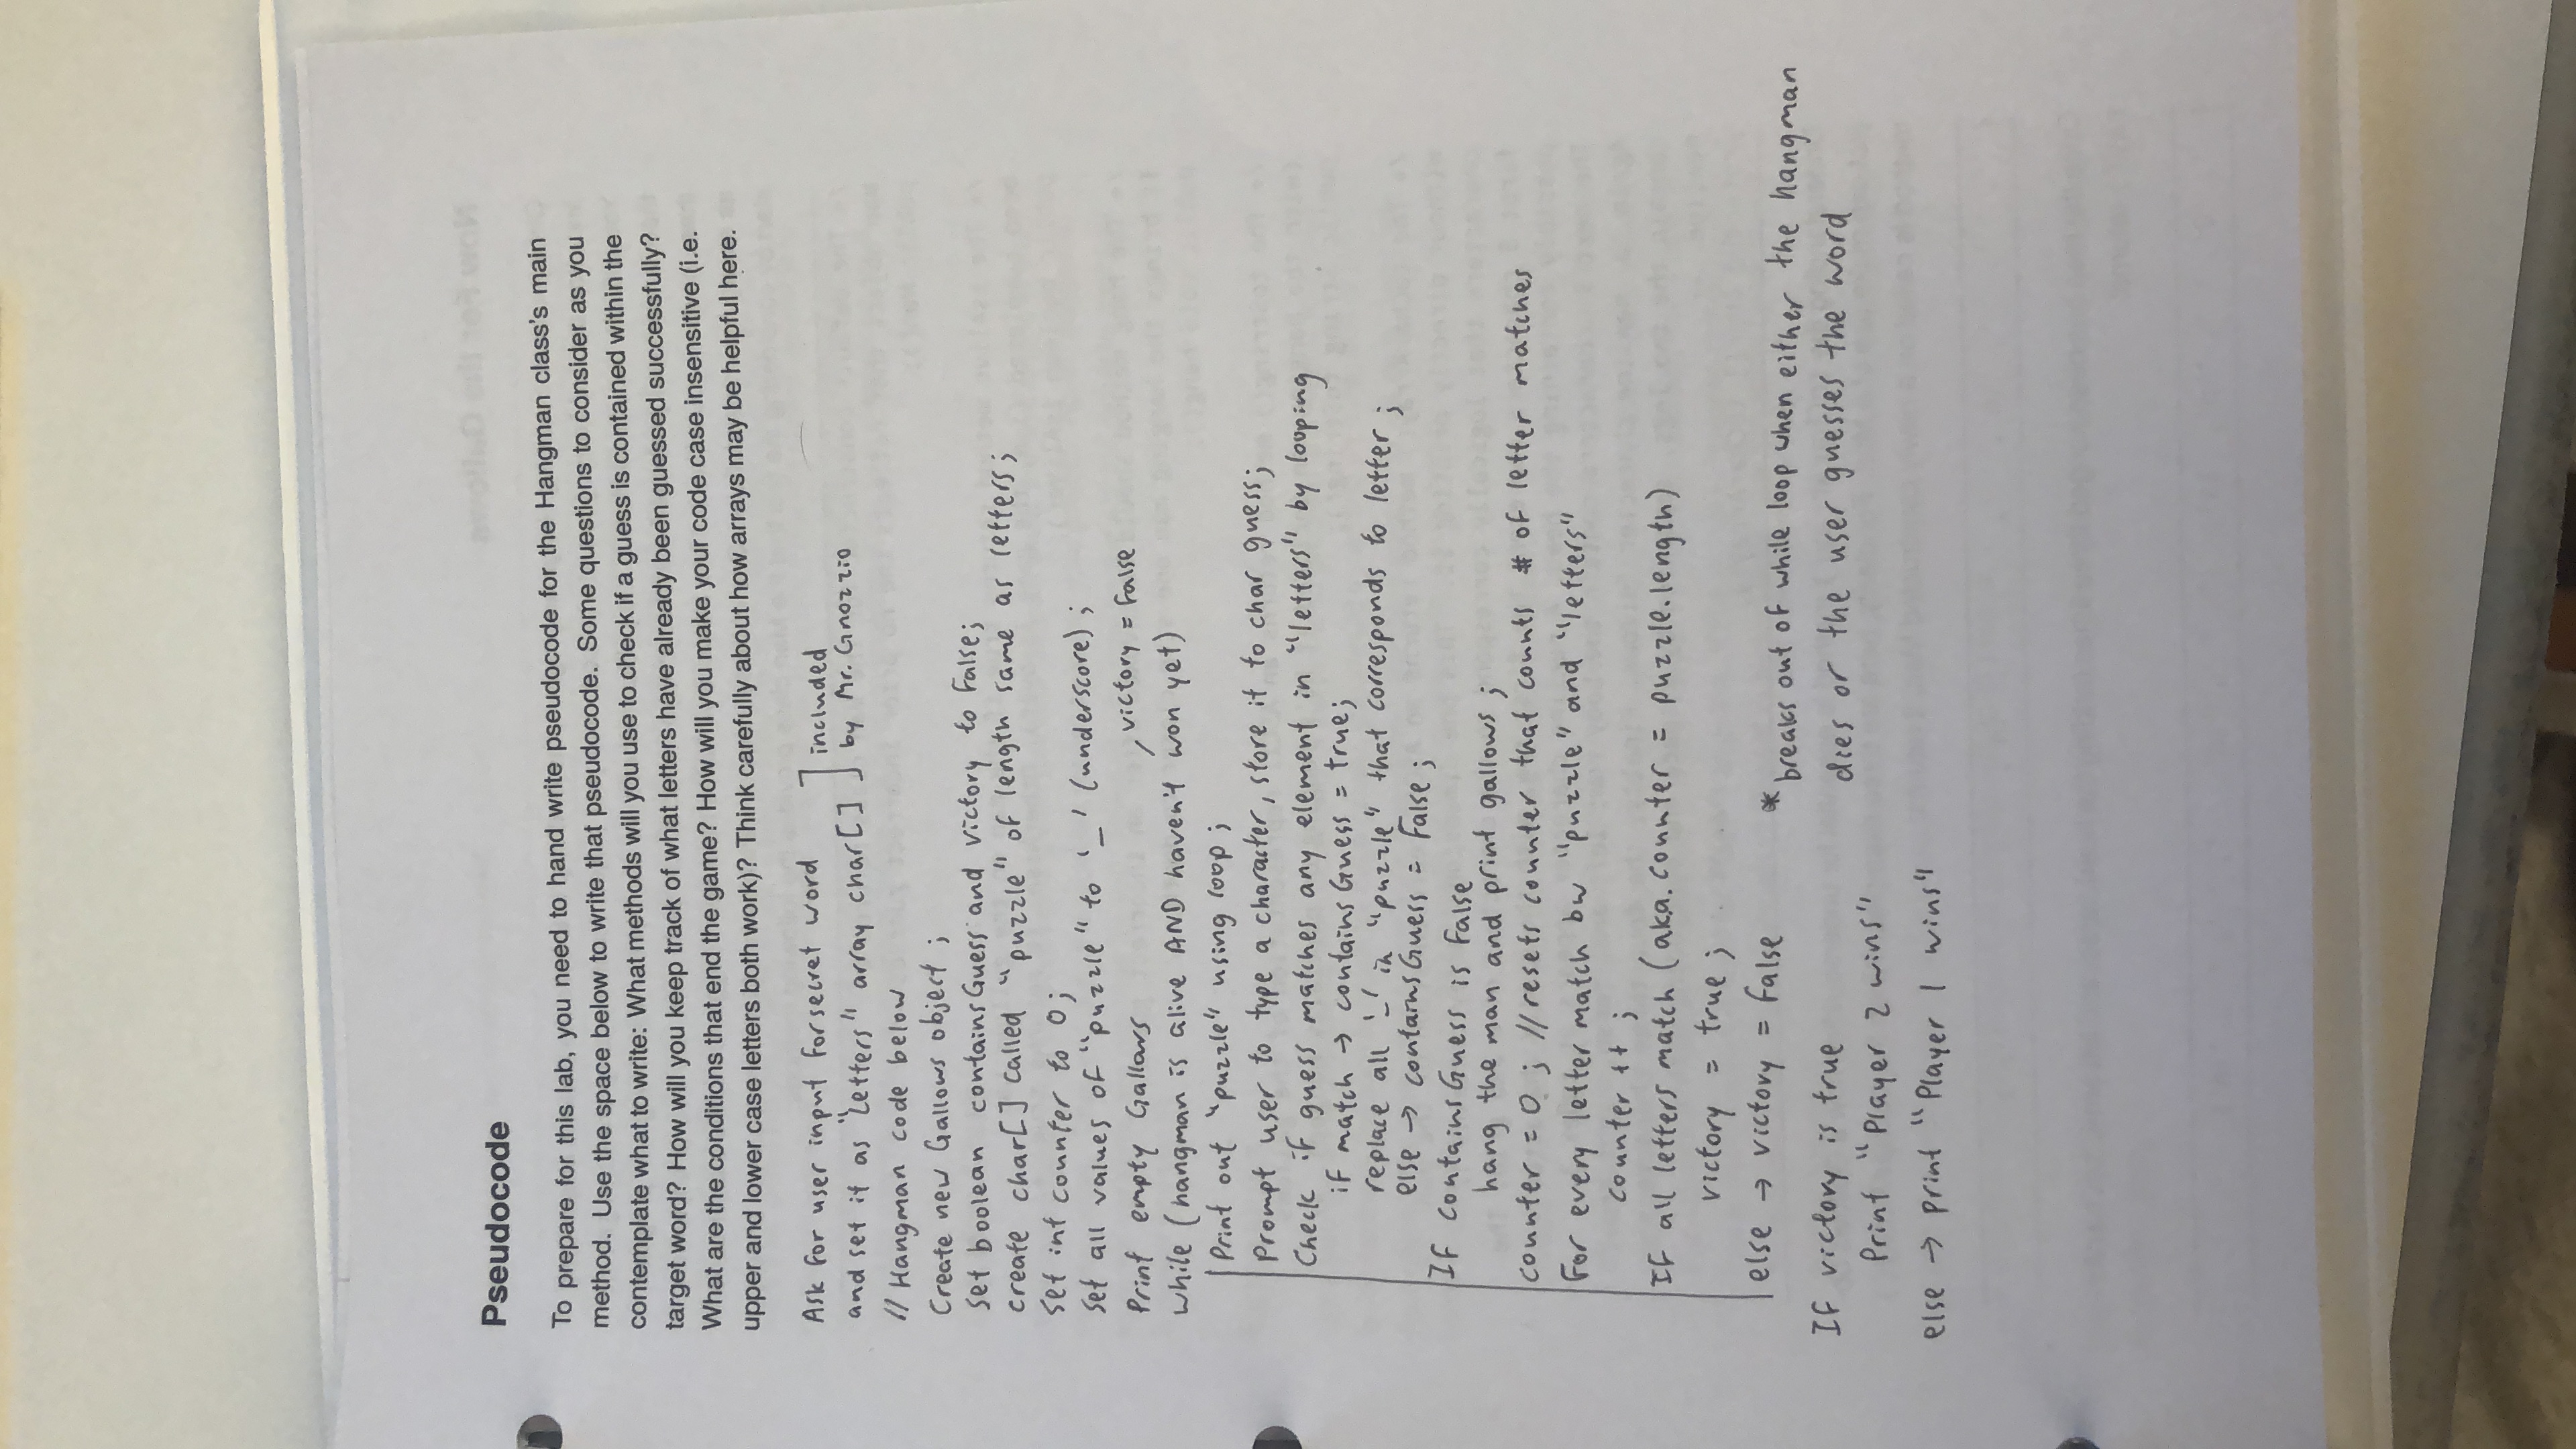 Pseudocode
To prepare for this lab, you need to hand write pseudocode for the Hangman class's main
method. Use the space below to write that pseudocode. Some questions to consider as you
contemplate what to write: What methods will you use to check if a guess is contained within the
target word? How will you keep track of what letters have already been guessed successfully?
What are the conditions that end the game? How will you make your code case insensitive (i.e.
upper and lower case letters both work)? Think carefully about how arrays may be helpful here.
Ask for user input for secret word
and set it as "letters" array char[]
included
by Mr. Gnozzio
// Hangman code below
Create new Gallows object ;
Set boolean containsGuess and victory to false;
create char[] called "puzzle" of length same as letters;
set int counter to 0;
Set all values of "puzzle" to '_' (underscore) ;
Print empty Gallows
victory = false
while (hangman is alive AND haven't won yet)
Print out "puzzle" using loop ;
Prompt user to type a character, store it to char guess;
Check if guess matches any element in "letters" by looping
if match → containsGuess = true;
replace all '_' in "puzzle" that corresponds to letter ;
else → containsGuess = false ;
If containsGuess is false
hang the man and print gallows ;
counter = 0 ; // resets counter that counts # of letter matches
For every letter match bw "puzzle" and "letters"
counter ++ ;
If all letters match (aka. counter = puzzle.length)
victory = true ;
else → victory = false
* breaks out of while loop when either the hangman
dies or the user guesses the word
If victory is true
Print "Player 2 wins"
else → print "Player 1 wins"